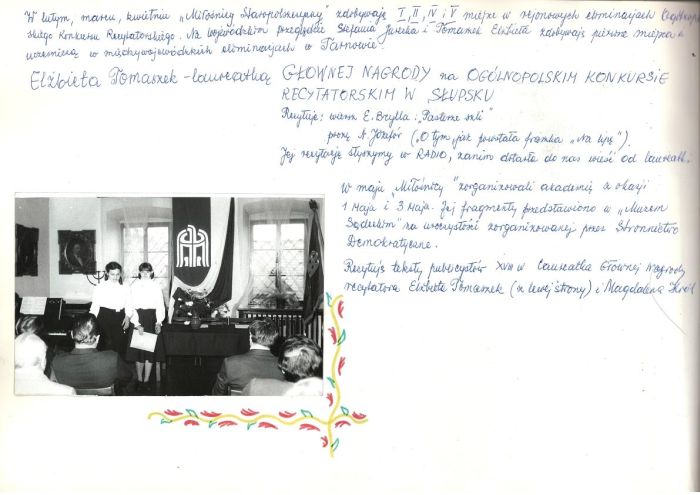 W lutym, marcu, kwietniu „Miłośnicy Staropolszczyzny” zdobywają I, II, IV i V miejsce w rejonowych eliminacjach Ogólnopol-
skiego Konkursu Recytatorskiego. Na wojewódzkim przeglądzie Stefania Jurska i Tomasek Elżbieta zdobywają pierwsze miejsca i
uczestniczą w międzywojewódzkich eliminacjach w Tarnowie.
Elżbieta Tomasek - laureatką GŁÓWNEJ NAGRODY na OGÓLNOPOLSKIM KONKURSIE
RECYTATORSKIM W SŁUPSKU
Recytuje: wiersz E. Brylla: „Pasterze szli”
prozę („O tym, jak powstała fraszka „Na lipę”).
Jej recytację słyszymy w RADIO, zanim dotarła do nas wieść od laureatki.
W maju „Miłośnicy” zorganizowali akademię z okazji
1 Maja i 3 Maja. Jej fragmenty przedstawiono w „Muzeum
Sądeckim” na uroczystości zorganizowanej przez Stronnictwo
Demokratyczne.
Recytują teksty publicystów XVIII w laureatka Głównej Nagrody
recytatora Elżbieta Tomasek (z lewej strony) i Magdalena Król